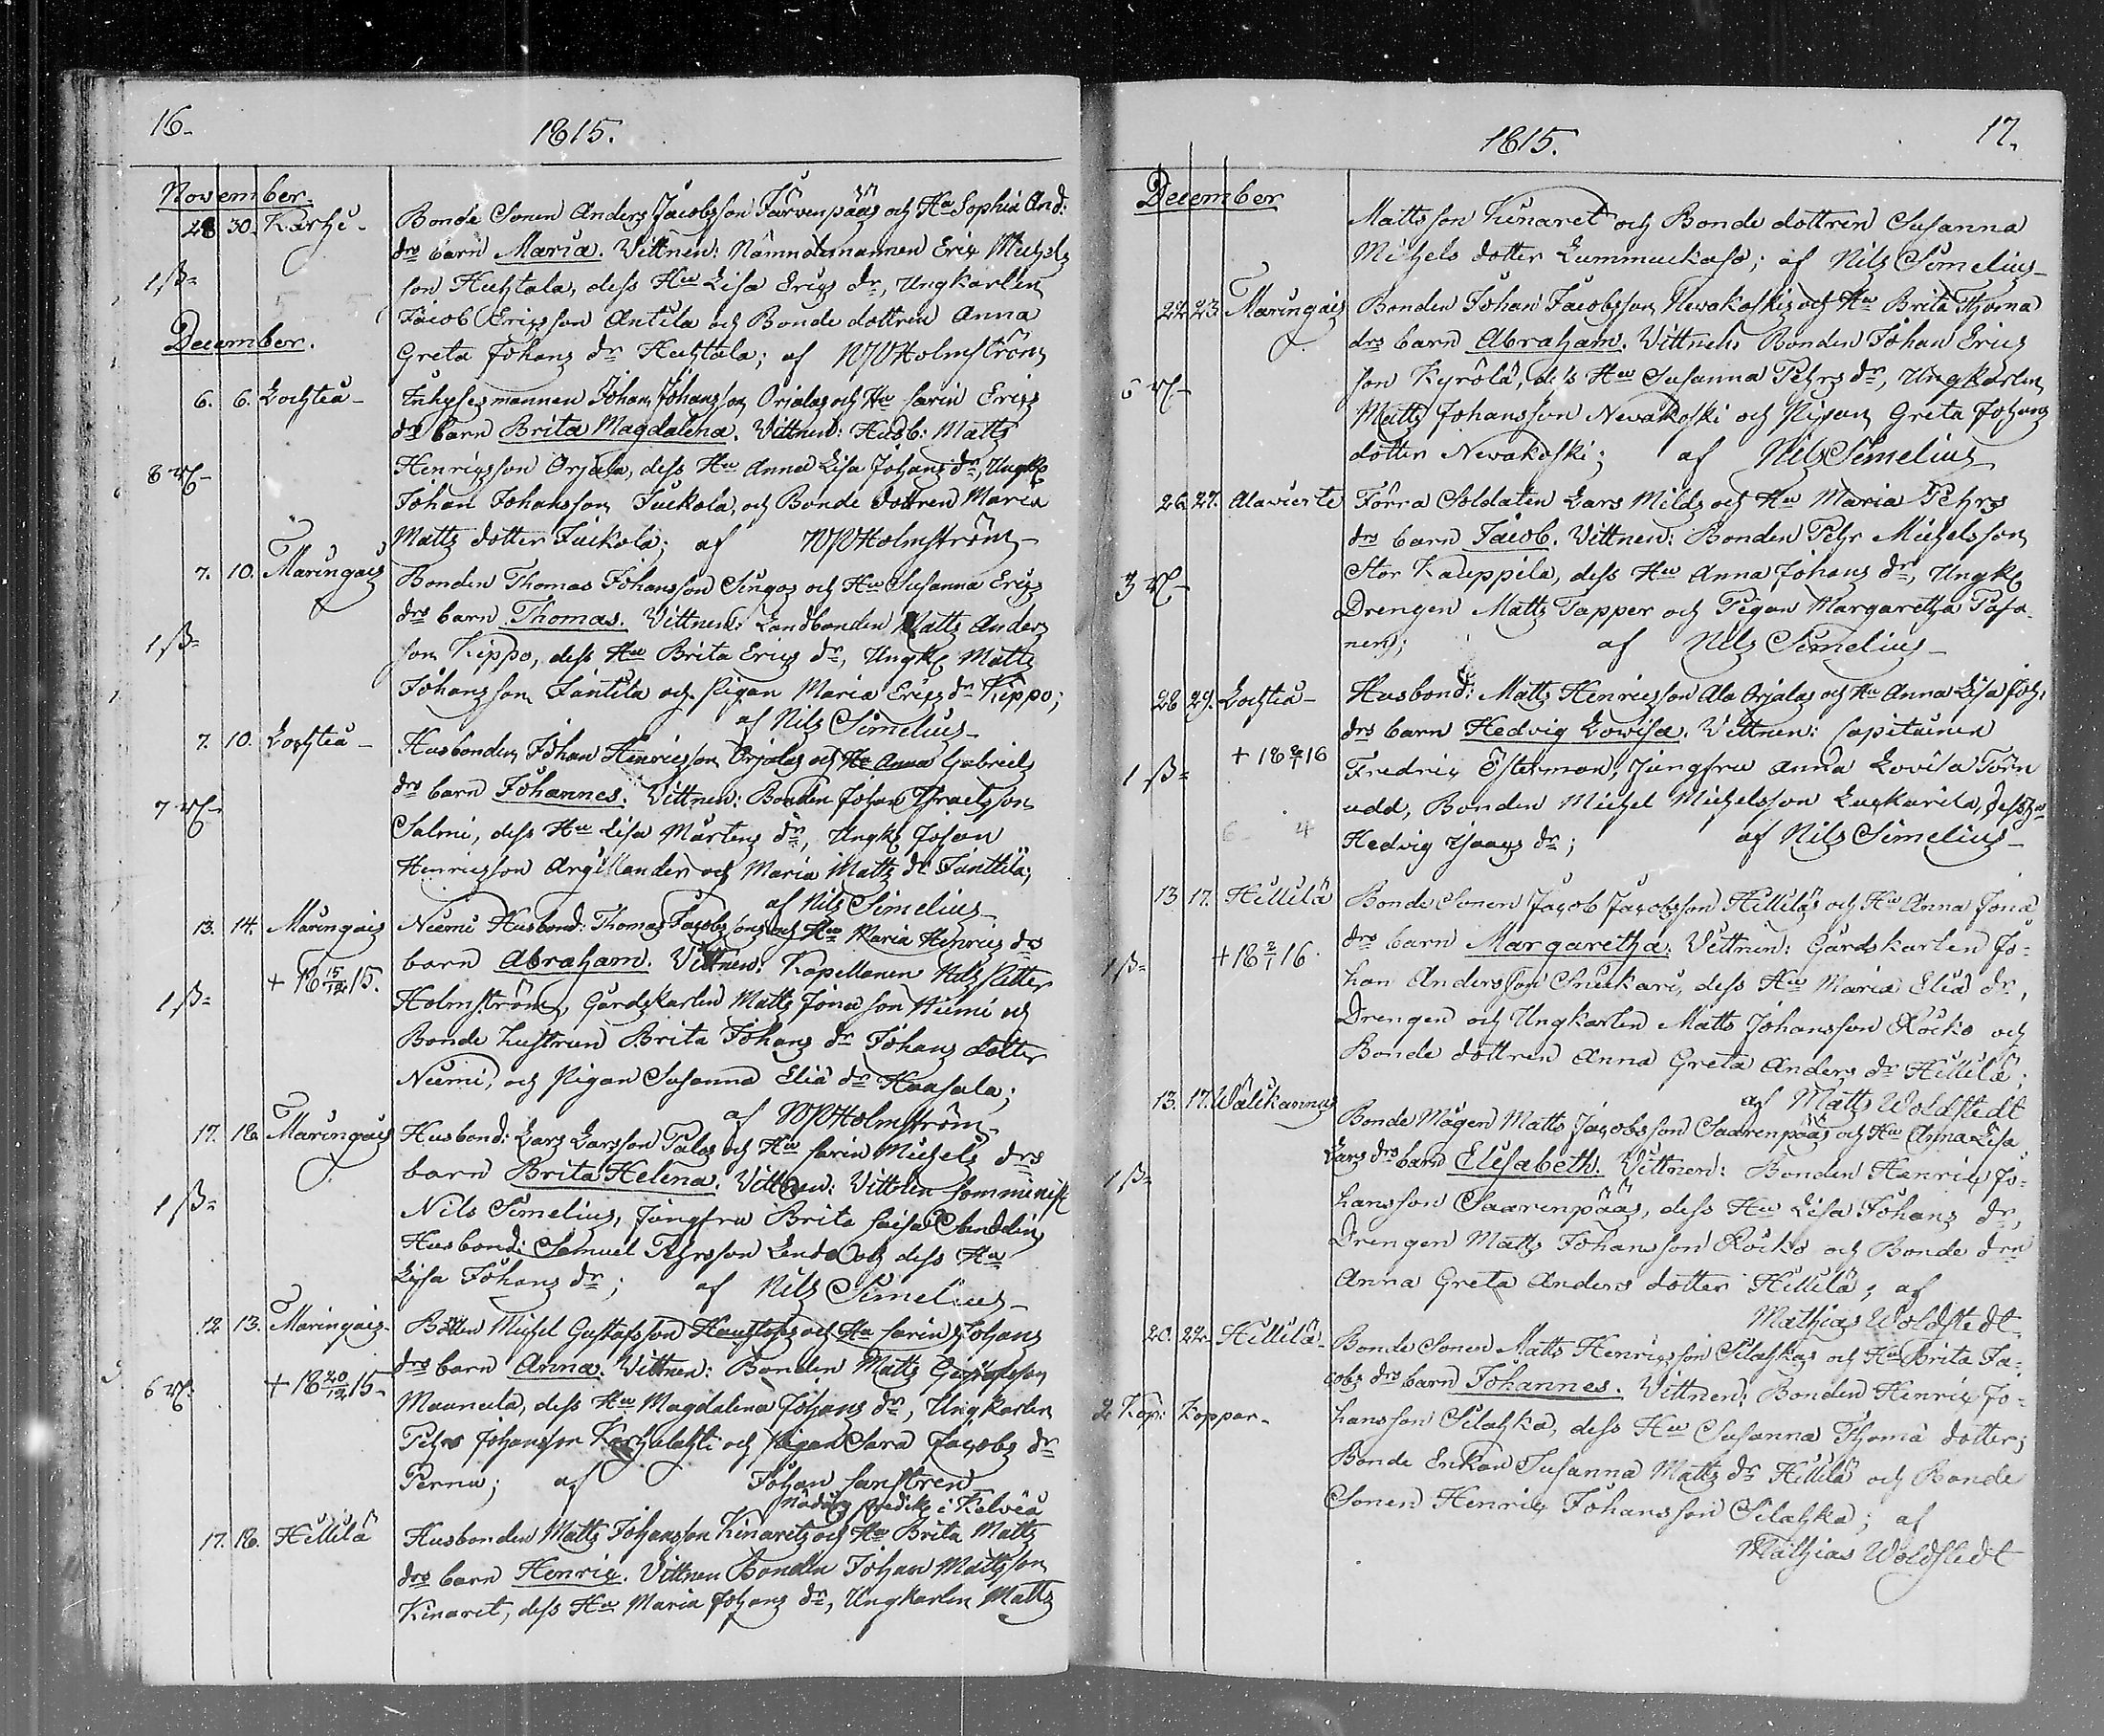 16.
1815.
November.
28 30. Karhi. Bonde Sonen Anders Jacobsson Järvenpääs och Hu Sophia And:
drs barn Maria. Vittnen: Nämndemannen Eric Michels
1 ß= son Huhtala, dess Hu Lisa Erics dr, Ungkarlen
Jacob Ericsson Antila och Bonde dottren Anna
December.
Greta Johans dr Huhtala; af NPHolmström
6. 6. Lochteå Inhysesmannen Johan Johansson Orjalas och Hu Carin Erics
drs barn Brita Magdalena. Vittnen: Husb: Matts
8 rß Henricsson Orjala, dess Hu Anna Lisa Johans dr, Ungk
Johan Johansson Juckola, och Bonde dottren Maria
Matts dotter Juckola; af NPHolmström
7. 10. Maringais Bonden Thomas Johansson Singos och Hu Susanna Erics
drs barn Thomas. Vittnen: Landbonden Matts Anders
1 ß= son Kippo, dess Hu Brita Erics dr, Ungk Matts
Johansson Jäntilä och Pigan Maria Erics dr Kippo;
af Nils Simelius
7. 10. Lochteå Husbonden Johan Henricsson Orjalas och Hu Anna Gabriels
drs barn Johannes. Vittnen: Bonden Johan Israelsson
7 rß Salmi, dess Hu Lisa Mårtens dr, Ungk Johan
Henricsson Argillander och Maria Matts dr Jänttilä;
af Nils Simelius
13. 14. Maringais Niemi Husbond: Thomas Jacobssons och Hu Maria Henrics drs
barn Abraham. Vittnen: Kapellanen Nils Petter
+ 18 15/12 15.
1 ß= Holmström, Gårdskarlen Matts Jonasson Niemi och
Bonde hustrun Brita Johans dr Johans dotter
Niemi, och Pigan Susanna Eliæ dr Haasala;
af NPHolmström
17. 18. Maringais Husbond: Lars Larsson Palos och Hu Carin Michels drs
barn Brita Helena. Vittnen: Vittnen Comminist
1 ß= Nils Simelius, Jungfru Brita Caisa
Husbond: Samuel Pehrsson och dess Hu
Lisa Johans dr; af Nils Simelius
12 13. Maringais Michel Gustafsson och Hu Carin Johans
drs barn Anna. Vittnen: Bonden Matts
6 rß + 18 20/12 15 Maunula, dess Hu Magdalena Johans dr, Ungkarlen
Pehr Johansson Korhalahti och Pigan Sara Jacobs dr
Perna; af Johan Canstrén
Nådårs Predik: i Kelviå
17. 18. Hillilä Husbonden Matts Johansson Kinarets och Hu Brita Matts
drs barn Henric. Vittnen Bonden Johan Mattsson
Kinaret, dess Hu Maria Johans dr, Ungkarlen Matts
17.
1815.
December
Mattsson Kinaret och Bonde dottren Susanna
Michels dotter Lummuckaso; af Nils Simelius
22 23 Maringais Bonden Johan Jacobsson Newakoskis och Hu Brita Thoma
drs barn Abraham. Vittnen Bonden Johan Erics
6 rß son Kyrölä, dess Hu Susanna Pehrs dr, Ungkarlen
Matts Johansson Newakoski och Pigan Greta Johans
dotter Newakoski; af Nils Simelius
26. 27. Alavierte Förra Soldaten Lars Milds och Hu Maria Pehrs
drs barn Jacob. Vittnen: Bonden Pehr Michelsson
3 rß Stor Kauppila, dess Hu Anna Johans dr, Ungk
Drengen Matts Tapper och Pigan Margaretha Pasa-
nen; af Nils Simelius
28 29. Lochteå Husbond: Matts Henricsson Ala Orjalas och Hu Anna Lisa Joh:
drs barn Hedvig Lowisa. Vittnen: Capitainen
1 ß= + 18 2/1 16 Fredric Österman, Jungfru Anna Lovisa Törn
udd, Bonden Michel Michelsson Luckarila, dess Hu
Hedvig Isaacs dr; af Nils Simelius
13 17. Hillilä Bonde Sonen Jacob Jacobsson Hilliläs och Hu Anna Jonæ
drs barn Margaretha. Vittnen: Gårdskarlen Jo-
1 ß= + 18 2/1 16. han Andersson Snickari, dess Hu Maria Eliæ dr,
Drengen och Ungkarlen Matts Johansson Röckö och
Bonde dottren Anna Greta Anders dr Hillilä;
af Matts Woldstedt
13. 17. Wälikannus Bonde Mågen Matts Jacobsson Saarenpääs och Hu Anna Lisa
Lars drs barn Elisabeth. Vittnen: Bonden Henric Jo-
1 ß= hansson Saarenpääs, dess Hu Lisa Johans dr,
Drengen Matts Johansson Röckö och Bonde drn
Anna Greta Anders dotter Hillilä; af
Mathias Woldstedt.
20. 22. Hillilä Bonde Sonen Matts Henricsson Pilahkas och Hu Brita Ja-
cobs drs barn Johannes. Vittnen: Bonden Henric Jo-
2 Kop: Koppar. hansson Silahka, dess Hu Susanna Thomæ dotter;
Bonde Enkan Susanna Matts dr Hillilä och Bonde
Sonen Henric Johansson Silahka; af
Mathias Woldstedt